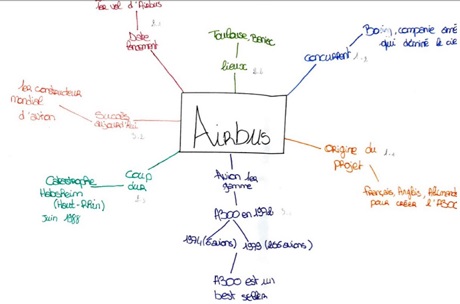 1er vol d'Airbus
Date
Toulouse,
lieux
Boeing, compagnie
qui
concurrent
1er constructeur
mondial
d'avion
Succès
AIRBUS
Origine du
projet
Français, Anglais, Allemands
pour créer l'A300
Coup
dur
Catastrophe
Habsheim
(Haut-Rhin)
Juin 1988
Avion 1er
gamme
A300 en 1972
1974 (6 avions)
1979 (256 avions)
A300 est un
best seller